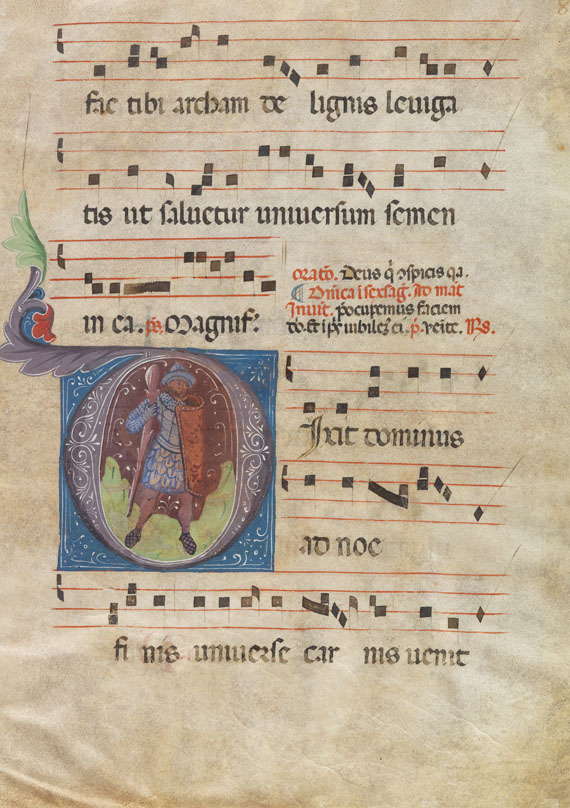 fac tibi archam de lignis leuiga
tis ut saluetur uniuersum semen
in ea. ps. Magnif:
orato. Deus q̄ ɔspicis qa.
Dn̄ica ī sexag̃. Ad mat
Inuit. p̄ocupemus faciem
do. Et ī ps̄ iubilem9 ei. p̄. Venite. Rs.
Ixit dominus
ad noe
fi nis uniuerse car nis uenit